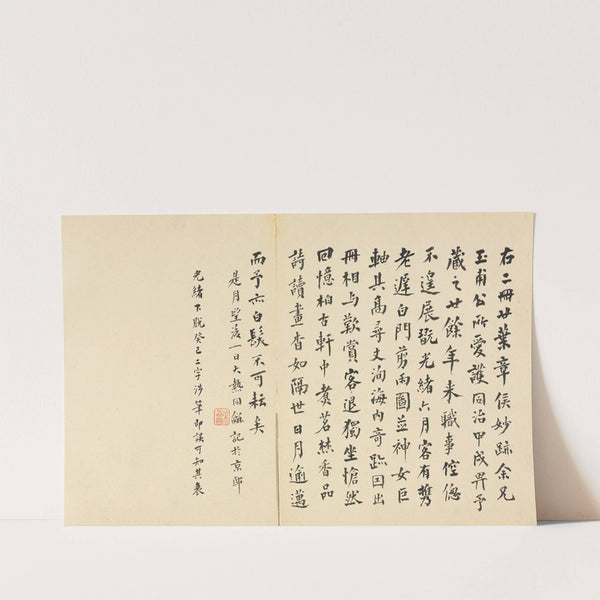 右二冊廿葉章侯妙跡余兄
玉甫公所愛護同治甲戌畀予
藏之廿餘年来職事倥傯
不遑展翫光緒六月客有携
老遲白門剪雨圖並神女巨
軸其高尋丈洵海内奇跡囙出
冊相与歎賞客退獨坐愴然
回憶柏古軒中煑茗爇香品
詩讀畫杳如隔世日月逾邁
而予亦白髮不可耘矣
是月望後一日大熱同龢記於京邸
光緒下脱癸巳二字涉筆即誤可知其衰